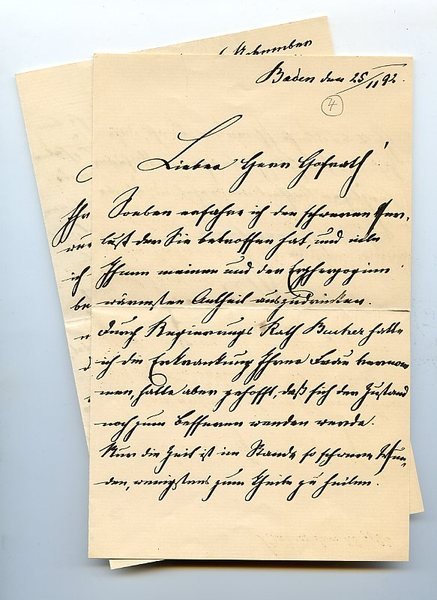 Baden den 25/11 92.
4
Lieber Herr Hofrath!
Soeben erfahre ich den schweren Ver-
lust den Sie betroffen hat, und eile
Ihnen meinen und der Erzherzogin
wärmsten Antheil auszudrücken.
Durch Regierungs Rath hatte
ich die Erkrankung Ihrer Frau vernom-
men, hatte aber gehofft, daß sich der Zustand
noch zum Besseren wenden werde.
Nur die Zeit ist im Stande so schwere Wun-
den, wenigstens zum Theile zu heilen.